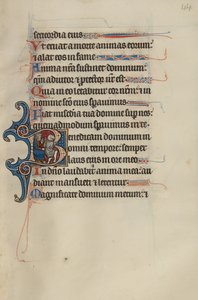 sericordia eius
Ut eruat a morte animas eorum:
et alat eos in fame
Anima nostra sustinet dominum:
quoniam adiutor et protector noster est
Quia in eo letabitur cor nostrum: et in
nomine sancto eius sperauimus
Fiat misericordia tua domine super nos:
quemadmodum sperauimus in te
Benedicam dominum in
omni tempore: semper
laus eius in ore meo
In domino laudabitur anima mea: au
diant mansueti et letentur
Magnificate dominum mecum: et